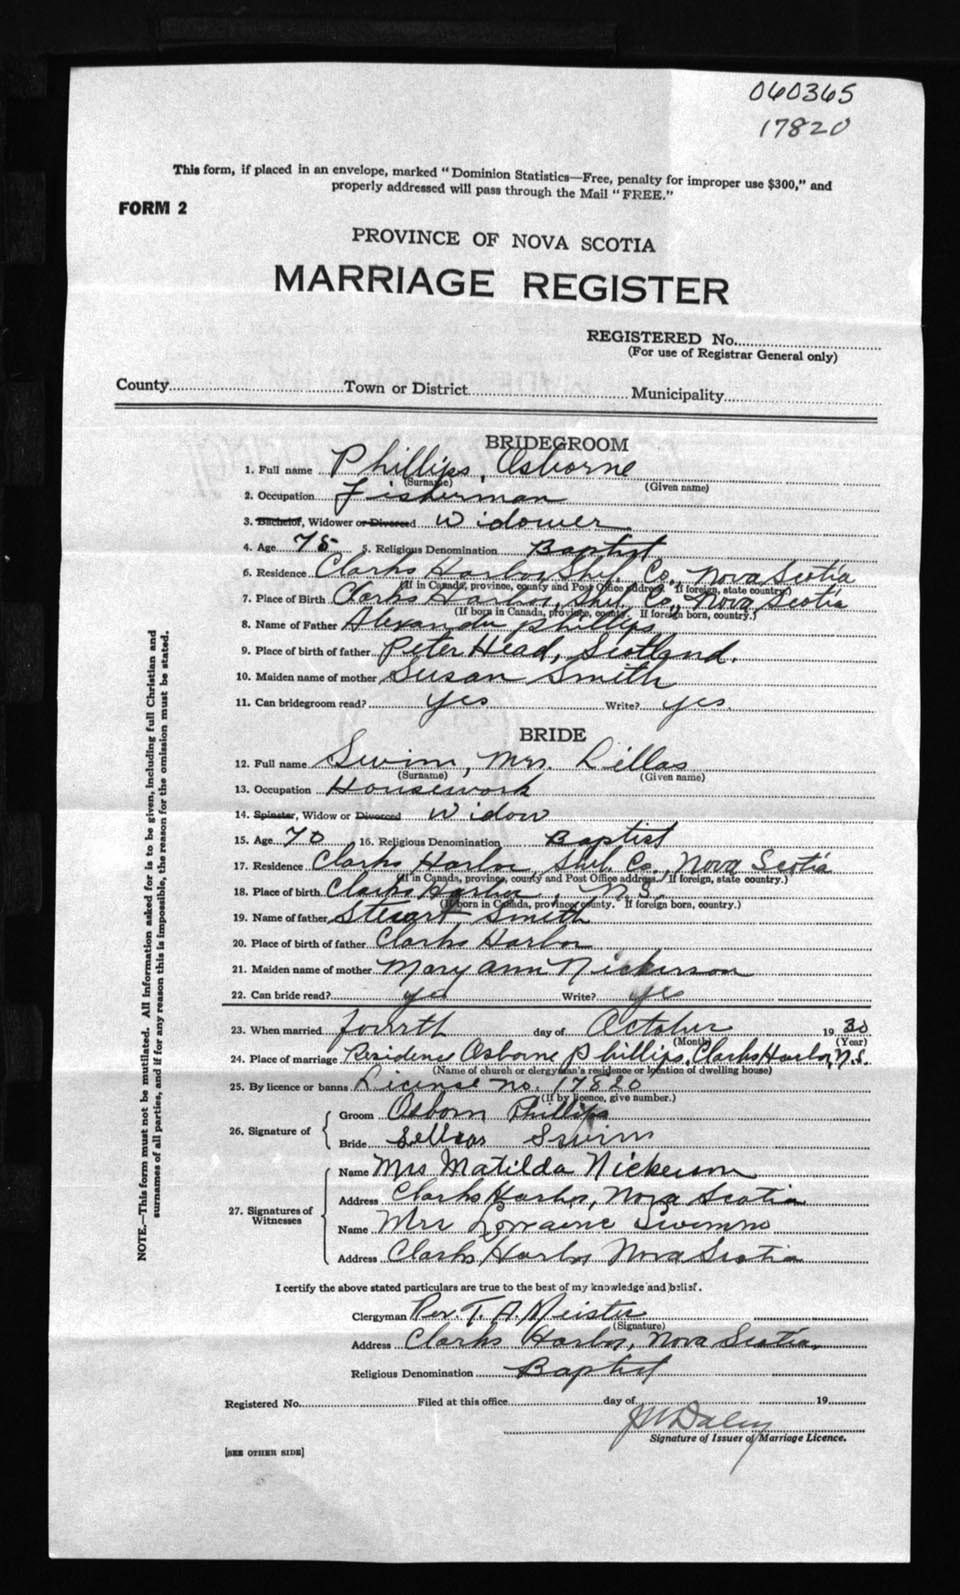 060365
17820
This form, if placed in an envelope, marked "Dominion Statistics—Free, penalty for improper use $300," and
properly addressed will pass through the Mail "FREE."
FORM 2
PROVINCE OF NOVA SCOTIA
MARRIAGE REGISTER
REGISTERED No.
(For use of Registrar General only)
County Town or District Municipality
BRIDEGROOM
1. Full name Phillips, Osborne
(Surname) (Given name)
2. Occupation Fisherman
3. Bachelor, Widower or Divorced Widower
4. Age 75 5. Religious Denomination Baptist
6. Residence Clarks Harbor, Shel. Co., Nova Scotia
(If in Canada, province, county and Post Office address. If foreign, state country.)
7. Place of Birth Clarks Harbor, Shel. Co., Nova Scotia
(If born in Canada, province, county. If foreign born, country.)
8. Name of Father Alexander Phillips
9. Place of birth of father Peter Head, Scotland.
10. Maiden name of mother Susan Smith
11. Can bridegroom read? yes Write? yes.
BRIDE
12. Full name Swim, Mrs. Dillas
(Surname) (Given name)
13. Occupation Housework
14. Spinster, Widow or Divorced Widow
15. Age 70 16. Religious Denomination Baptist
17. Residence Clarks Harbor Shel. Co., Nova Scotia
(If in Canada, province, county and Post Office address. If foreign, state country.)
18. Place of birth Clarks Harbor, N.S.
(If born in Canada, province, county. If foreign born, country.)
19. Name of father Stewart Smith
20. Place of birth of father Clarks Harbor
21. Maiden name of mother Mary Ann Nickerson
22. Can bride read? yes Write? yes
23. When married fourth day of October 1930
(Month) (Year)
24. Place of marriage Residence Osborne Phillips, Clarks Harbor, N.S.
(Name of church or clergyman's residence or location of dwelling house)
25. By licence or banns License no. 17820
(If by licence, give number.)
26. Signature of
Groom Osborn Phillips
Bride Swim
27. Signatures of Witnesses
Name Mrs Matilda Nickerson
Address Clarks Harbor, Nova Scotia
Name Mrs Lorraine Swimm
Address Clarks Harbor Nova Scotia
I certify the above stated particulars are true to the best of my knowledge and belief.
Clergyman Rev. T. A. Meister
(Signature)
Address Clarks Harbor, Nova Scotia
Religious Denomination Baptist
Registered No. Filed at this office day of 19
Daley
Signature of Issuer of Marriage Licence.
[SEE OTHER SIDE]
NOTE.—This form must not be mutilated. All information asked for is to be given, including full Christian and
surnames of all parties, and if for any reason this is impossible, the reason for the omission must be stated.